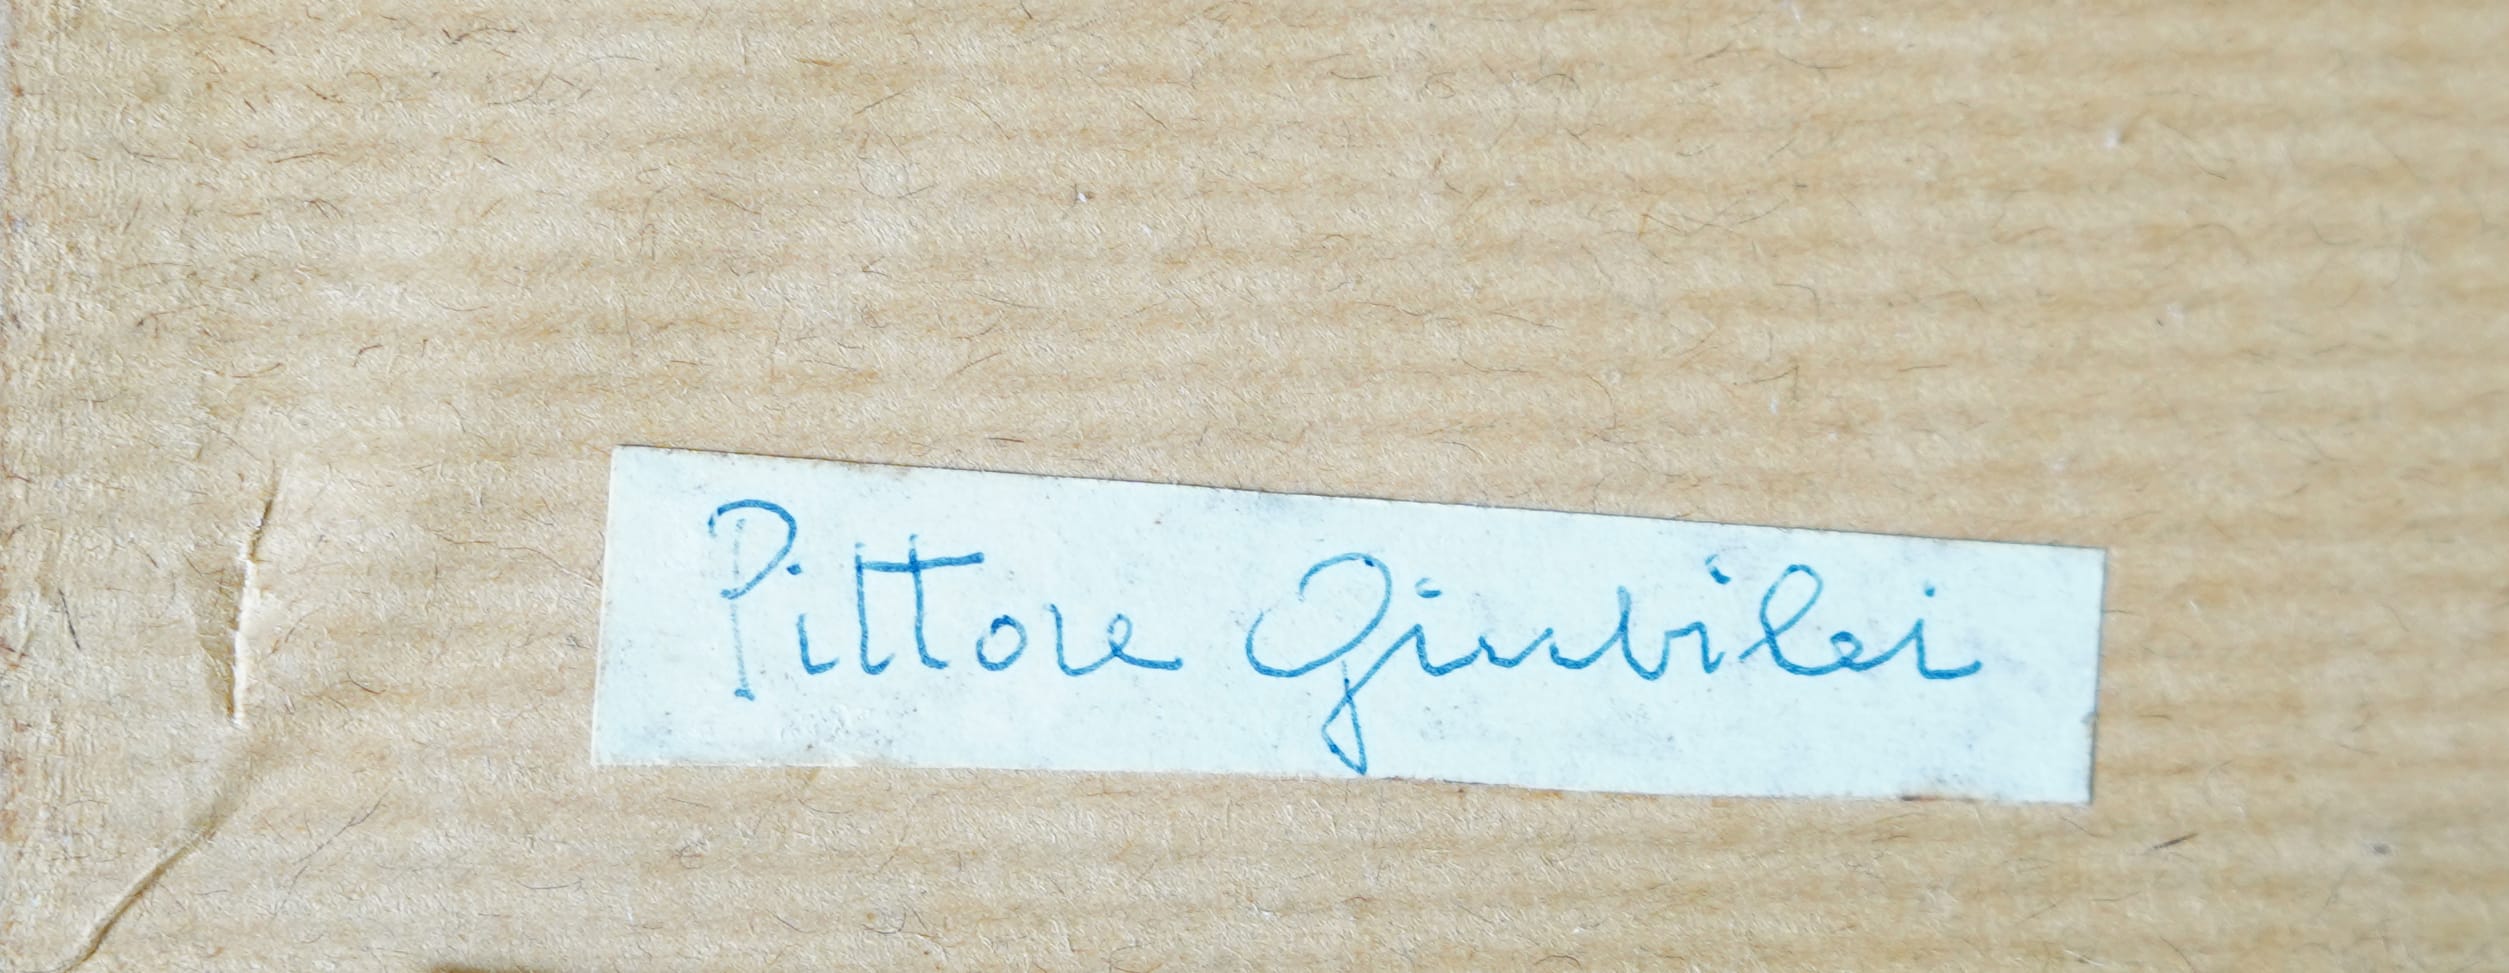 Pittore Giubilei